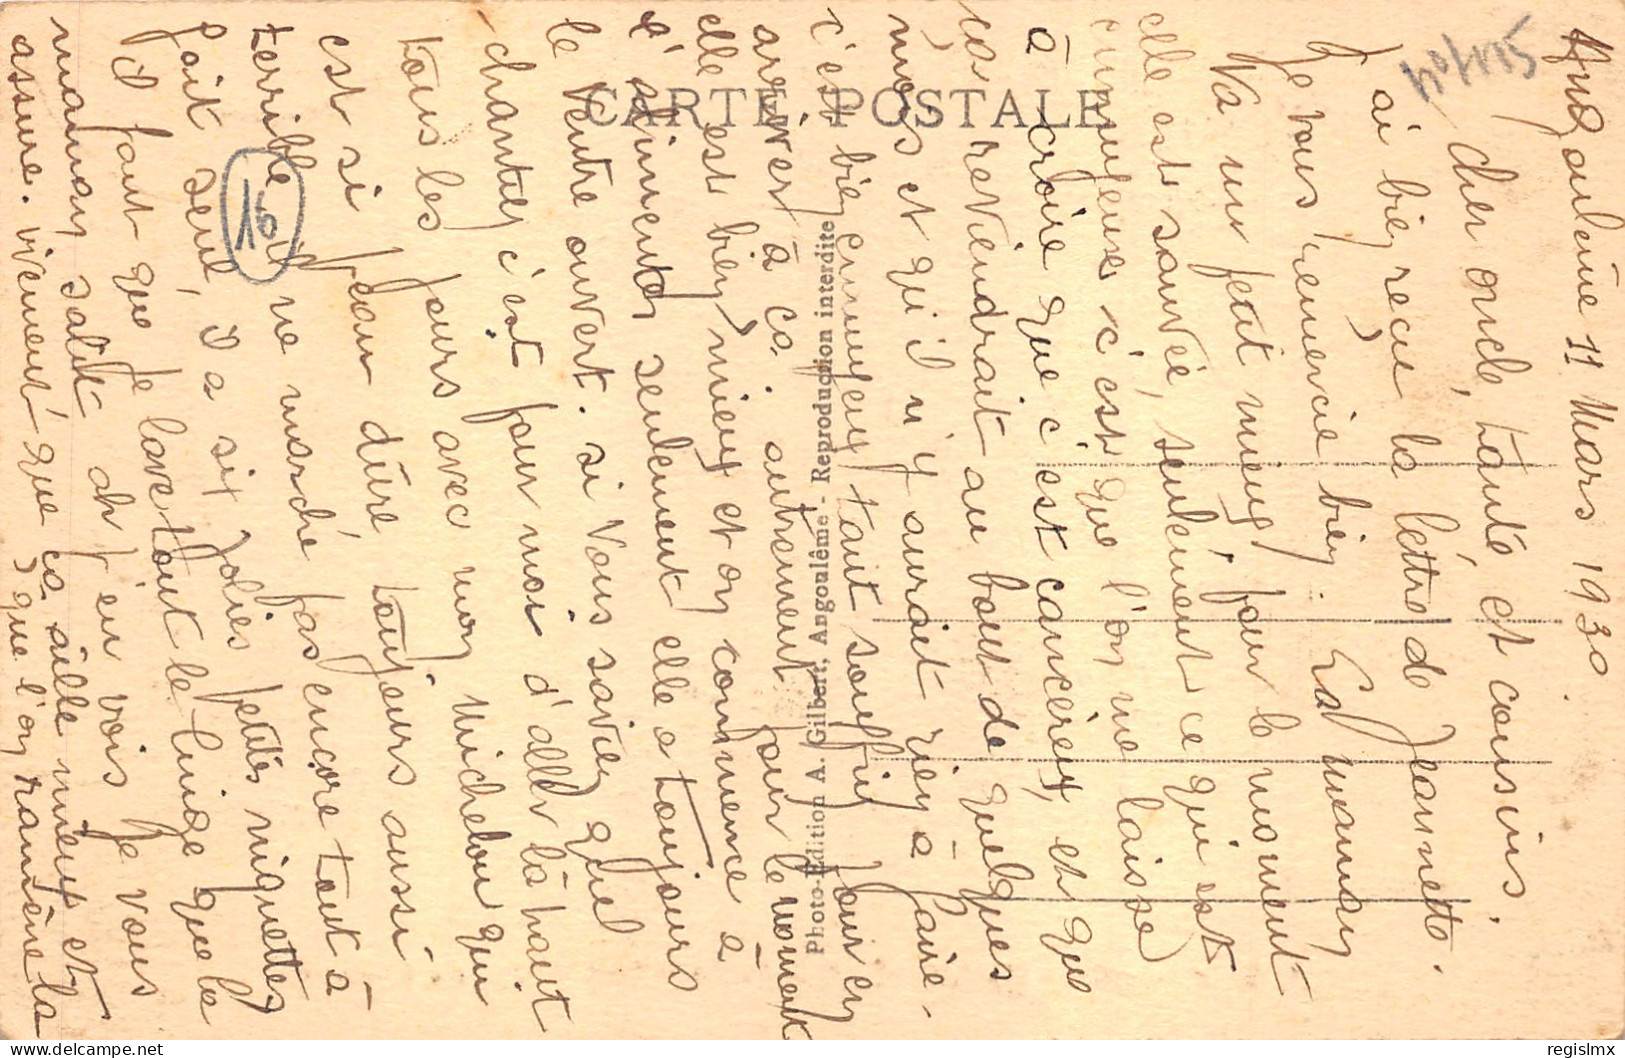 Angoulême 11 Mars 1930
Cher oncle, tante et cousins,
J'ai bien reçu la lettre de Jeannette.
Je vous remercie bien. La maman
va un petit mieux, pour le moment
elle est sauvée, seulement ce qui est
ennuyeux c'est que l'on me laisse
à croire que c'est cancéreux, et que
ça reviendrait au bout de quelques
mois et qu'il n'y aurait rien à faire.
c'est bien ennuyeux tant souffrir pour en
arriver à ça. autrement pour le moment
elle est bien mieux et on commence à
l'alimenter seulement elle a toujours
le ventre ouvert. si vous saviez quel
chantier c'est pour moi d'aller là haut
tous les jours avec mon Michelou qui
est si peau dure toujours aussi
terrible il ne marche pas encore tout à
fait seul, il a six jolies petites niquettes
Il faut que je lave tout le linge que la
maman salit ah j'en vois je vous
assure. vivement que ça aille mieux et
que l'on ramène la
CARTE POSTALE
Photo-Edition A. Gilbert, Angoulême - Reproduction interdite
16
regislmx